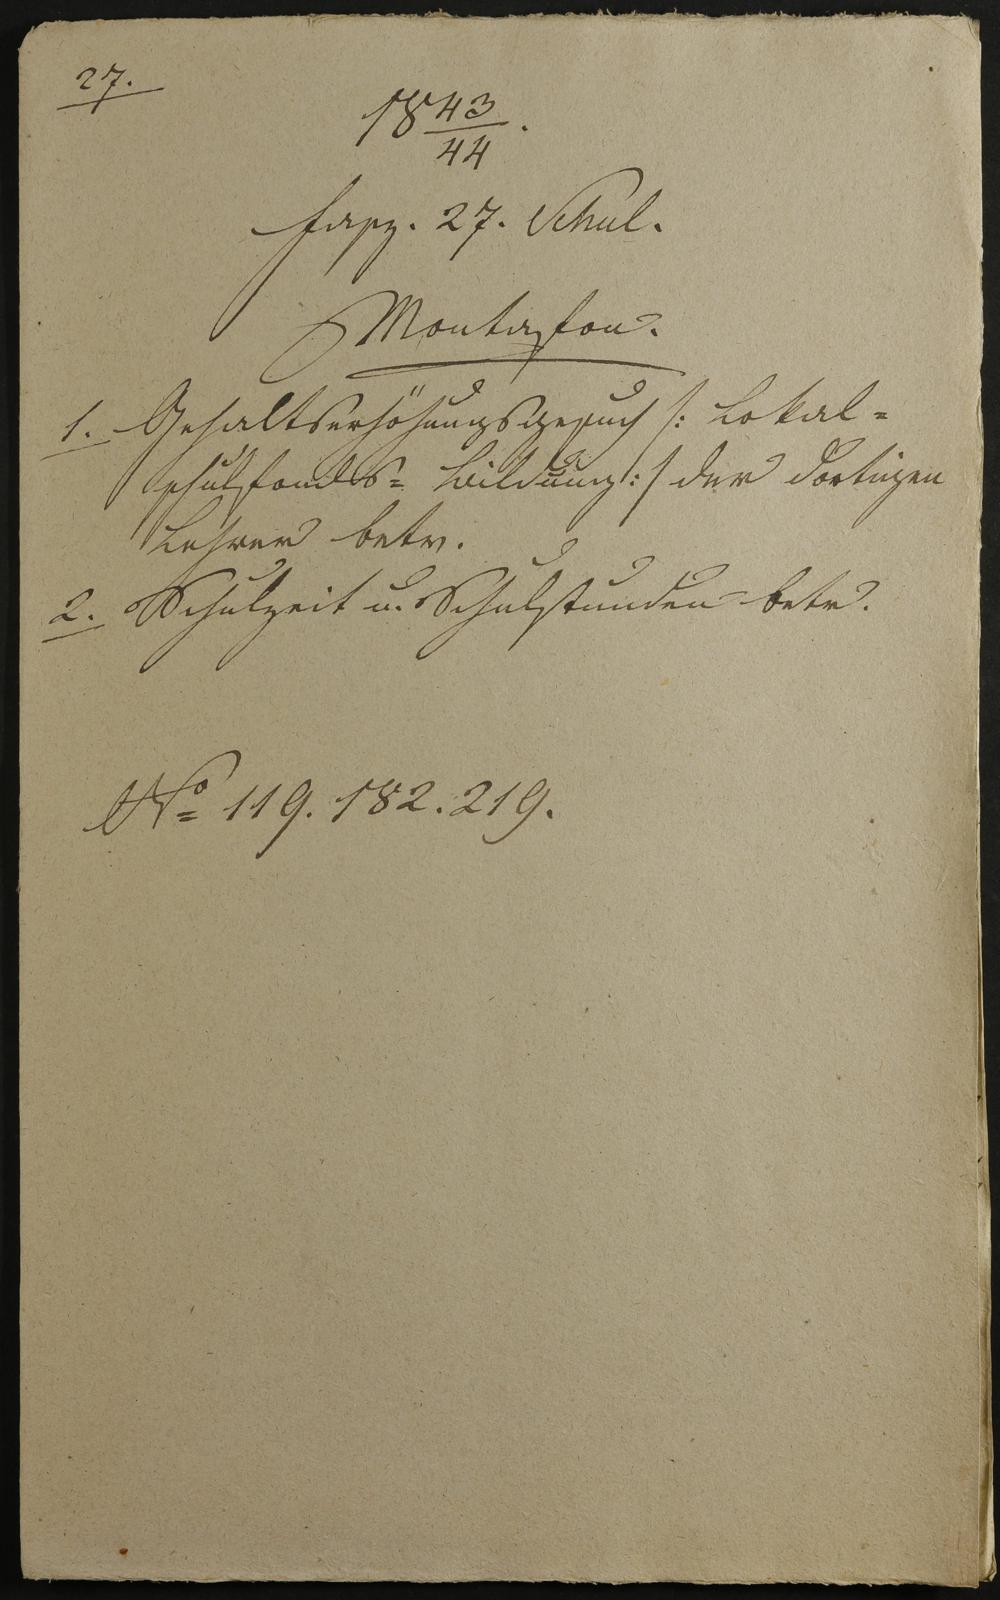 27.
1843/44.
Fasz. 27. Schul.
Montafon.
1. Gehaltserhöhungsgesuch /: Lokal=
schulfonds= Bildung :/ der dortigen
Lehrer betr.
2. Schulzeit u. Schulstunden betr.
No 119. 182. 219.